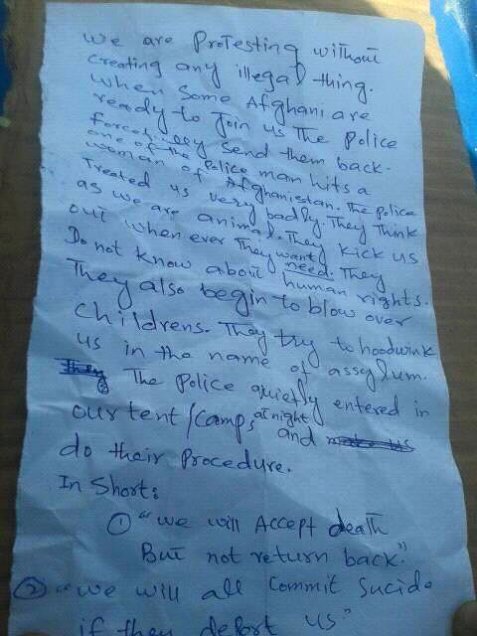 we are Protesting without
creating any illegal thing.
when some Afghani are
ready to Join us The Police
forcefully send them back.
one of the Police man hits a
woman of Afghanistan. The police
Treated us very badly. They Think
as we are animal. They kick us
out when ever They want need. They
Do not know about human rights.
They also begin to blow over
childrens. They try to hoodwink
us in the name of assylum.
They The Police quietly entered in
our tent/camps at night and make us
do their Procedure.
In Short:
① "we will Accept death
But not return back."
② "we will all commit Sucide
if they deport us"